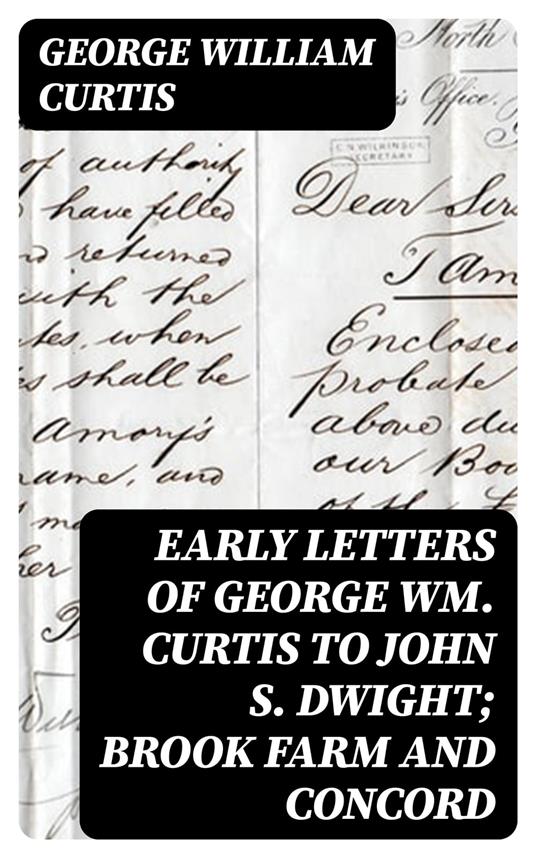 GEORGE WILLIAM
CURTIS
North
is Office.
C.N. WILKINSON
SECRETARY
of authority
have filled
returned
with the
when
shall be
Amory's
name, and
Dear Sirs
I am
Enclosed
probate
above du
our Boo
of the
EARLY LETTERS
OF GEORGE WM.
CURTIS TO JOHN
S. DWIGHT;
BROOK FARM AND
CONCORD